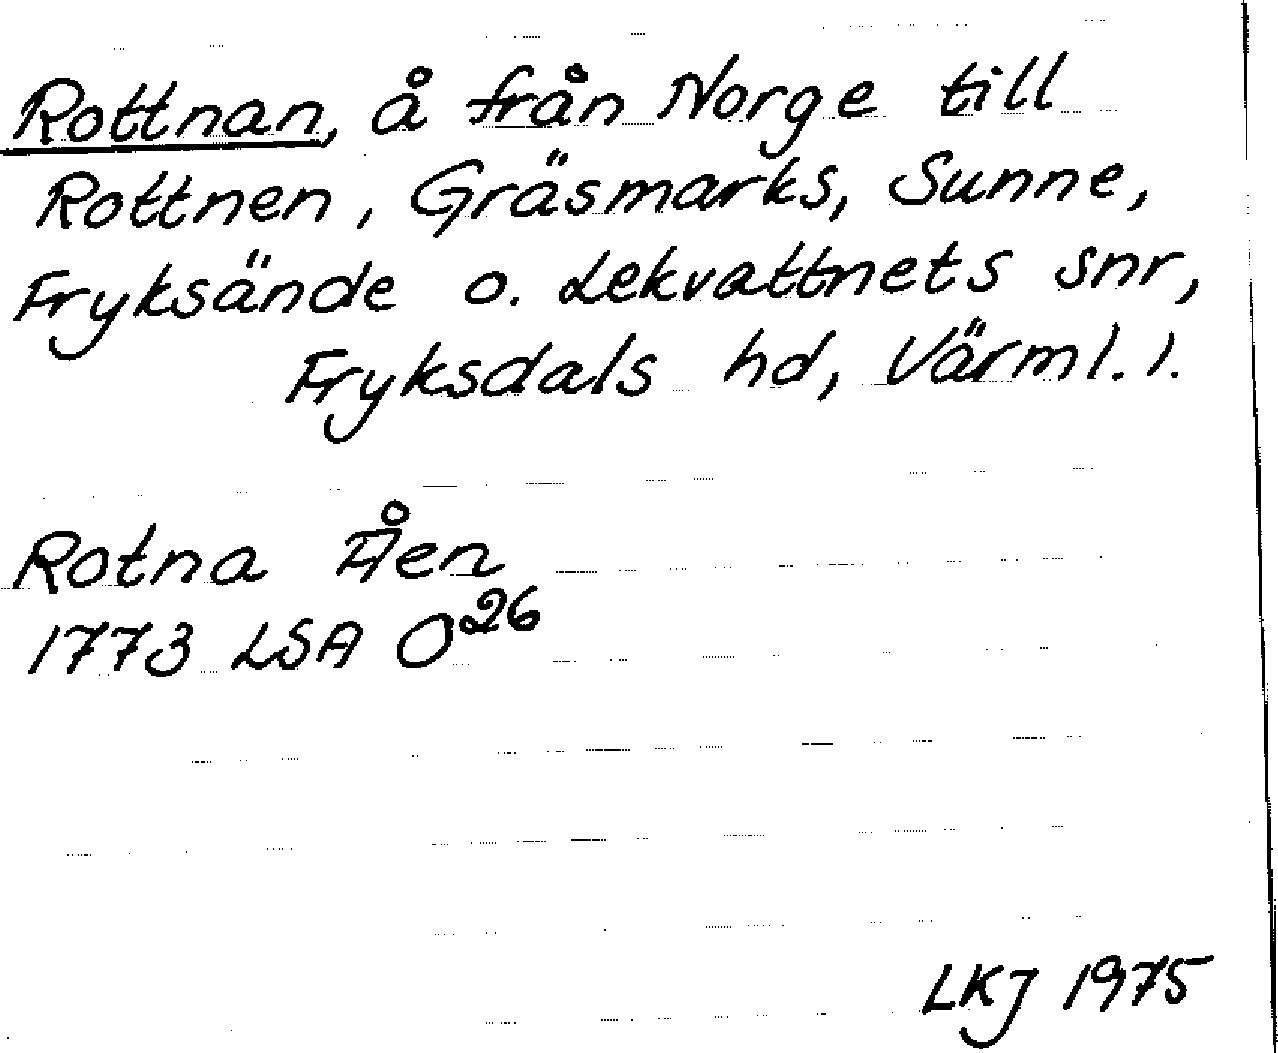 Rottnan, å från Norge till
Rottnen, Gräsmarks, Sunne,
Fryksände o. Lekvattnets snr,
Fryksdals hd, Värml. l.
Rotna Åen
1773 LSA O²⁶
LKJ 1975